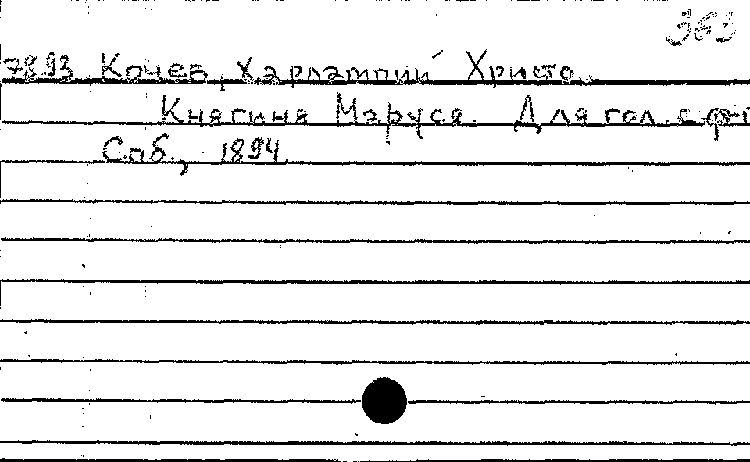 363
7893 Кочев, Харлампий Христо
Княгиня Маруся. Для гол. с ф-п
Спб., 1894